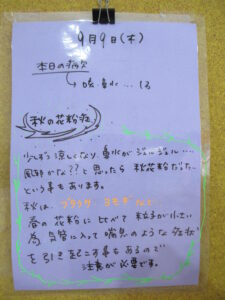 9月9日(木)
本日の病欠
→ 咳 鼻水 … 1名
秋の花粉症
少しずつ涼しくなり、鼻水がジュルジュル…
風邪かな??と思ったら 秋花粉だった
という事もあります。
秋は、ブタクサ ヨモギ など
春の花粉に比べて 粒子が小さい
為 気管に入って 喘息のような症状
を引き起こす事もあるので
注意が必要です。